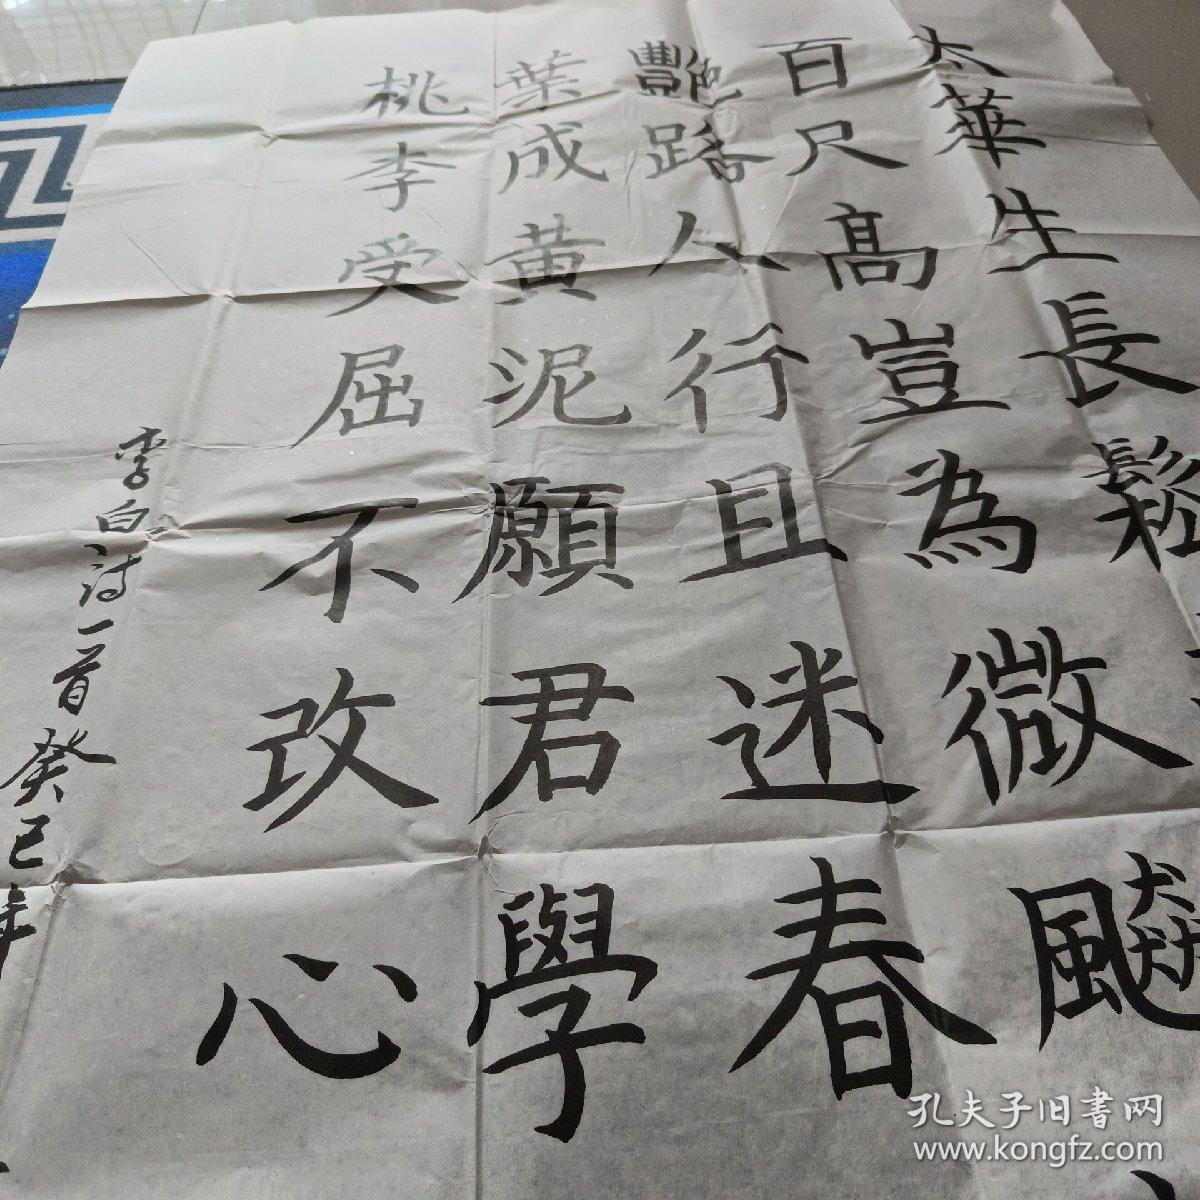 太華生長鬆
百尺髙豈為微飆
艷路人行且迷春
葉成黃泥願君學
桃李受屈不改心
李白诗一首癸巳年
孔夫子旧書网
www.kongfz.com